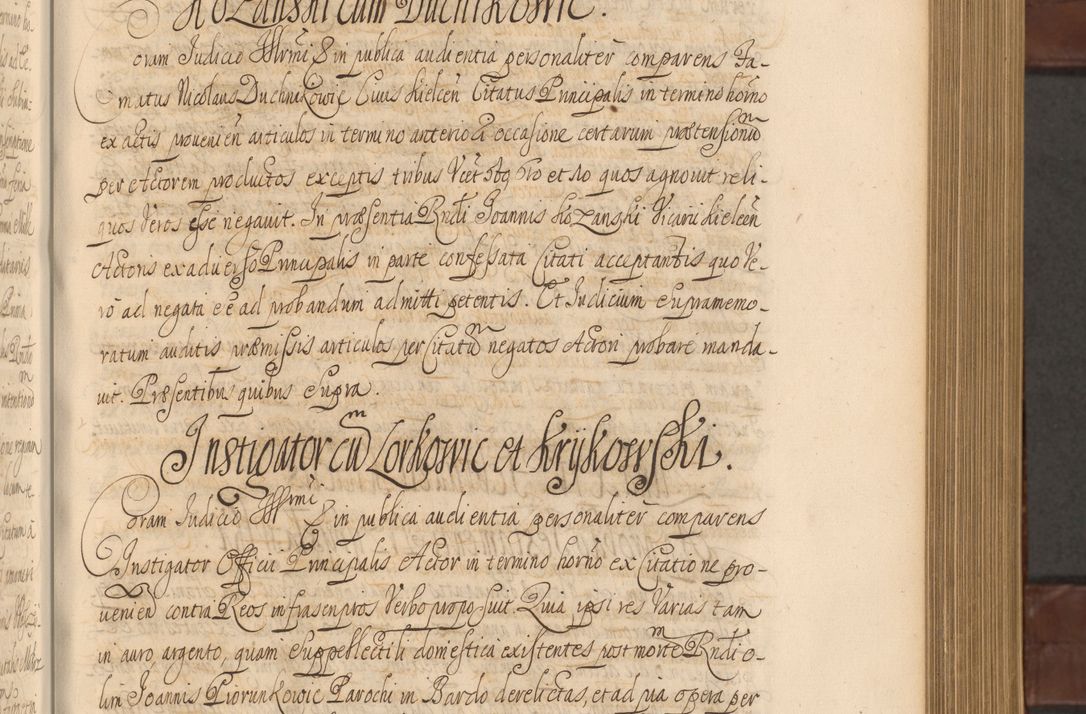 Kozanski cum Duchnikowic.
Coram Judicio Illrmi & in publica audientia personaliter comparens Fa-
matus Nicolaus Duchnikowic Civis Kielcen Citatus Principalis in termino horno
ex actis provenien articulos in termino anteriori occasione certarum prætensionu
per Actorem productos exceptis tribus Vict 8to 9no et 10 quos agnovit reli-
quos Veros esse negavit. In præsentia Rndi Joannis Kozanski Vicarii Kielcen
Actoris ex adverso Principalis in parte confessata Citati acceptantis quo Ve-
ro ad negata eē ad probandum admitti petentis. Et Judicium supramemo-
ratum auditis præmissis articulos per Citatu negatos Actori probare manda-
vit. Præsentibus quibus supra.
Instigator cum Lorkowic et Krzykowski.
Coram Judicio Illrmi & in publica audientia personaliter comparens
Instigator Officii Principalis Actor in termino horno ex Citatione pro-
venien contra Reos infrascnpros Verbo proposuit. Quia ipsi res Varias tam
in auro, argento, quam suppellectili domestica existentes post morte Rndi o-
lim Joannis Piorunkowic Parochi in Bardo derelictas, et ad pia opera per